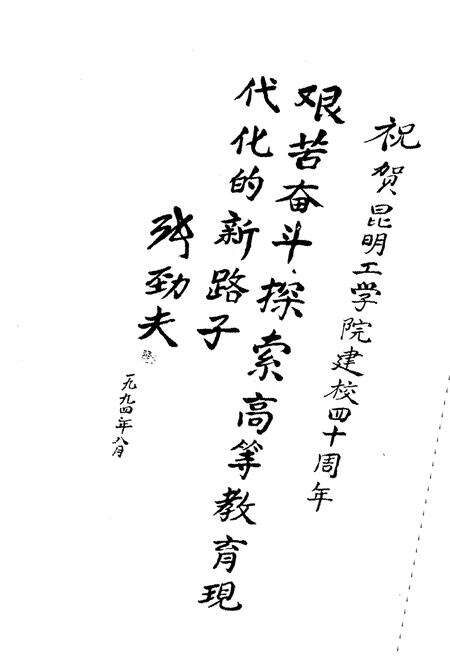 祝贺昆明工学院建校四十周年
艰苦奋斗、探索高等教育现
代化的新路子
张劲夫
一九九四年八月